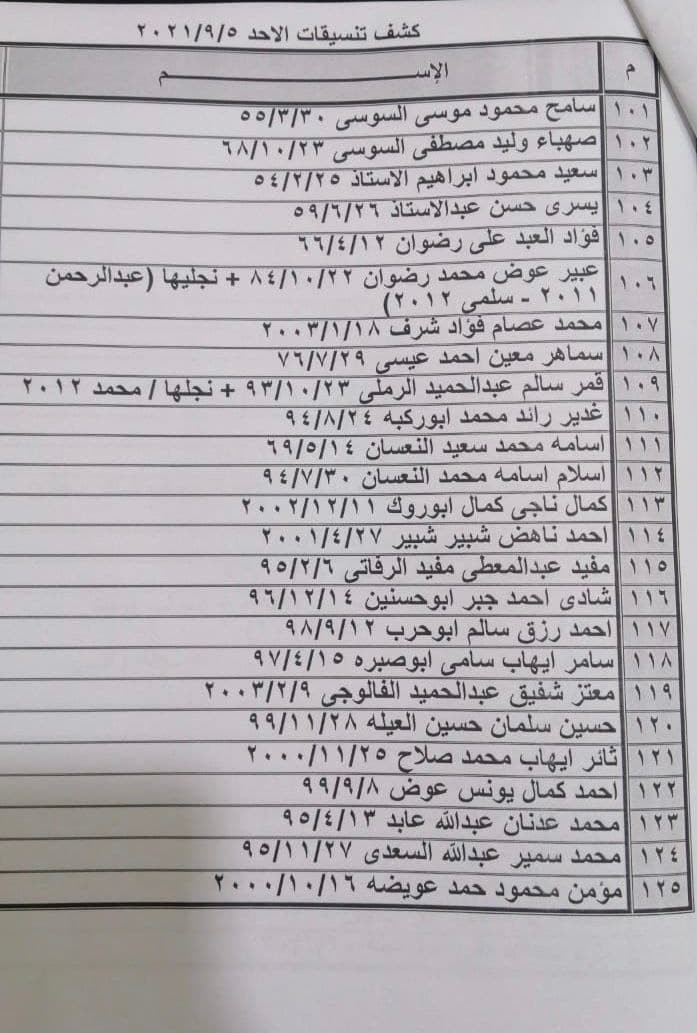 كشف تنسيقات الاحد ٢٠٢١/٩/٥
م الإســـــــــم
١٠١ سامح محمود موسى السوسى ٥٥/٣/٣٠
١٠٢ صهباء وليد مصطفى السوسى ٦٨/١٠/٢٣
١٠٣ سعيد محمود ابراهيم الاستاذ ٥٤/٢/٢٥
١٠٤ يسرى حسن عبدالاستاذ ٥٩/٦/٢٦
١٠٥ فؤاد العبد على رضوان ٦٦/٤/١٢
١٠٦ عبير عوض محمد رضوان ٨٤/١٠/٢٢ + نجليها (عبدالرحمن
٢٠١١ - سلمى ٢٠١٢)
١٠٧ محمد عصام فؤاد شرف ٢٠٠٣/١/١٨
١٠٨ سماهر معين احمد عيسى ٧٦/٧/٢٩
١٠٩ قمر سالم عبدالحميد الرملى ٩٣/١٠/٢٣ + نجلها / محمد ٢٠١٢
١١٠ غدير رائد محمد ابوركبه ٩٤/٨/٢٤
١١١ اسامه محمد سعيد النعسان ٦٩/٥/١٤
١١٢ اسلام اسامه محمد النعسان ٩٤/٧/٣٠
١١٣ كمال ناجى كمال ابوروك ٢٠٠٢/١٢/١١
١١٤ احمد ناهض شبير شبير ٢٠٠١/٤/٢٧
١١٥ مفيد عبدالمعطى مفيد الرفاتى ٩٥/٢/٦
١١٦ شادى احمد جبر ابوحسنين ٩٦/١٢/١٤
١١٧ احمد رزق سالم ابوحرب ٩٨/٩/١٢
١١٨ سامر ايهاب سامى ابوصبره ٩٧/٤/١٥
١١٩ معتز شفيق عبدالحميد الفالوجى ٢٠٠٣/٢/٩
١٢٠ حسين سلمان حسين العيله ٩٩/١١/٢٨
١٢١ ثائر ايهاب محمد صلاح ٢٠٠٠/١١/٢٥
١٢٢ احمد كمال يونس عوض ٩٩/٩/٨
١٢٣ محمد عدنان عبدالله عابد ٩٥/٤/١٣
١٢٤ محمد سمير عبدالله السعدى ٩٥/١١/٢٧
١٢٥ مؤمن محمود حمد عويضه ٢٠٠٠/١٠/١٦